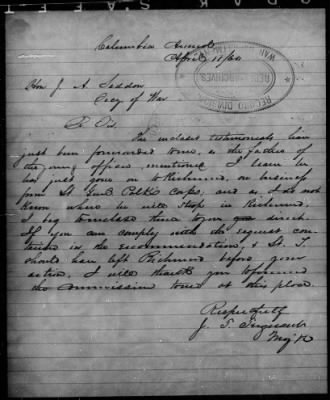 Columbia
April 11/64
Hon J. A. Seddon
Secy of War
Sir
The inclosed testimonials have
just been forwarded to me, as the father of
the young officer mentioned. I learn he
has just gone on to Richmond, on business
from Lt Genl Polk's Corps, and as I do not
know where he will stop in Richmond,
I beg to inclose them to you direct.
If you can comply with the request con-
tained in the recommendation, & Lt. T.
should have left Richmond before your
action, I will thank you to forward
the commission to me at this place.
Respectfully
J. T.
Maj
RECORD DIVISION
REBEL ARCHIVES
WAR DEPARTMENT